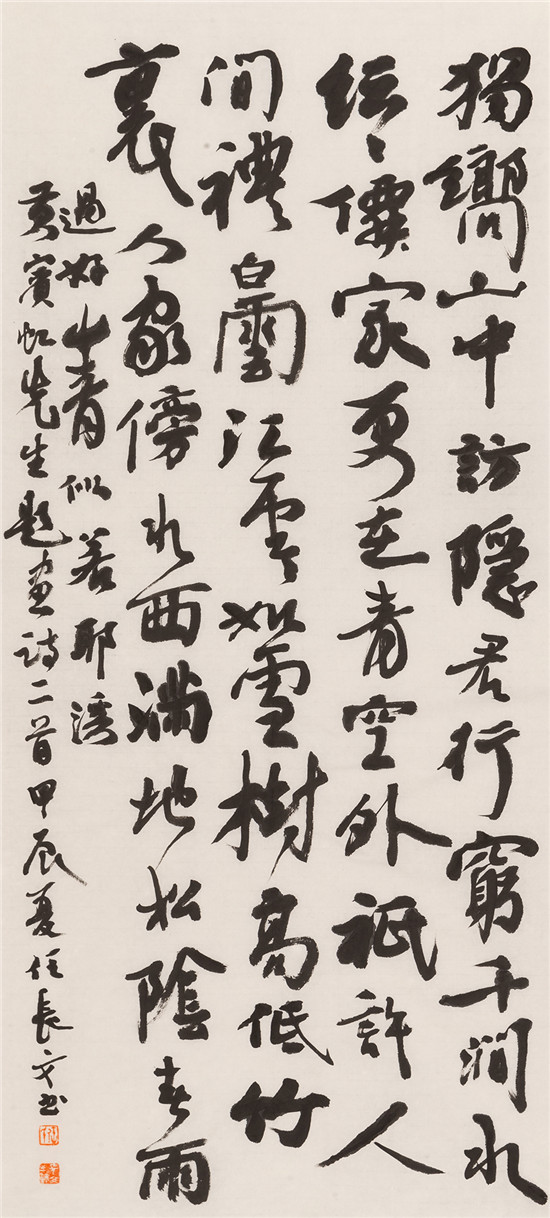 獨嚮山中訪隱君行窮千澗水
紜〻僊家更在青空外祇許人
間禮白雲江雲如雪樹高低竹
裏人家傍水西滿地松陰春雨
過好山青似若耶溪
黃賓虹先生題畫詩二首甲辰夏任長文書